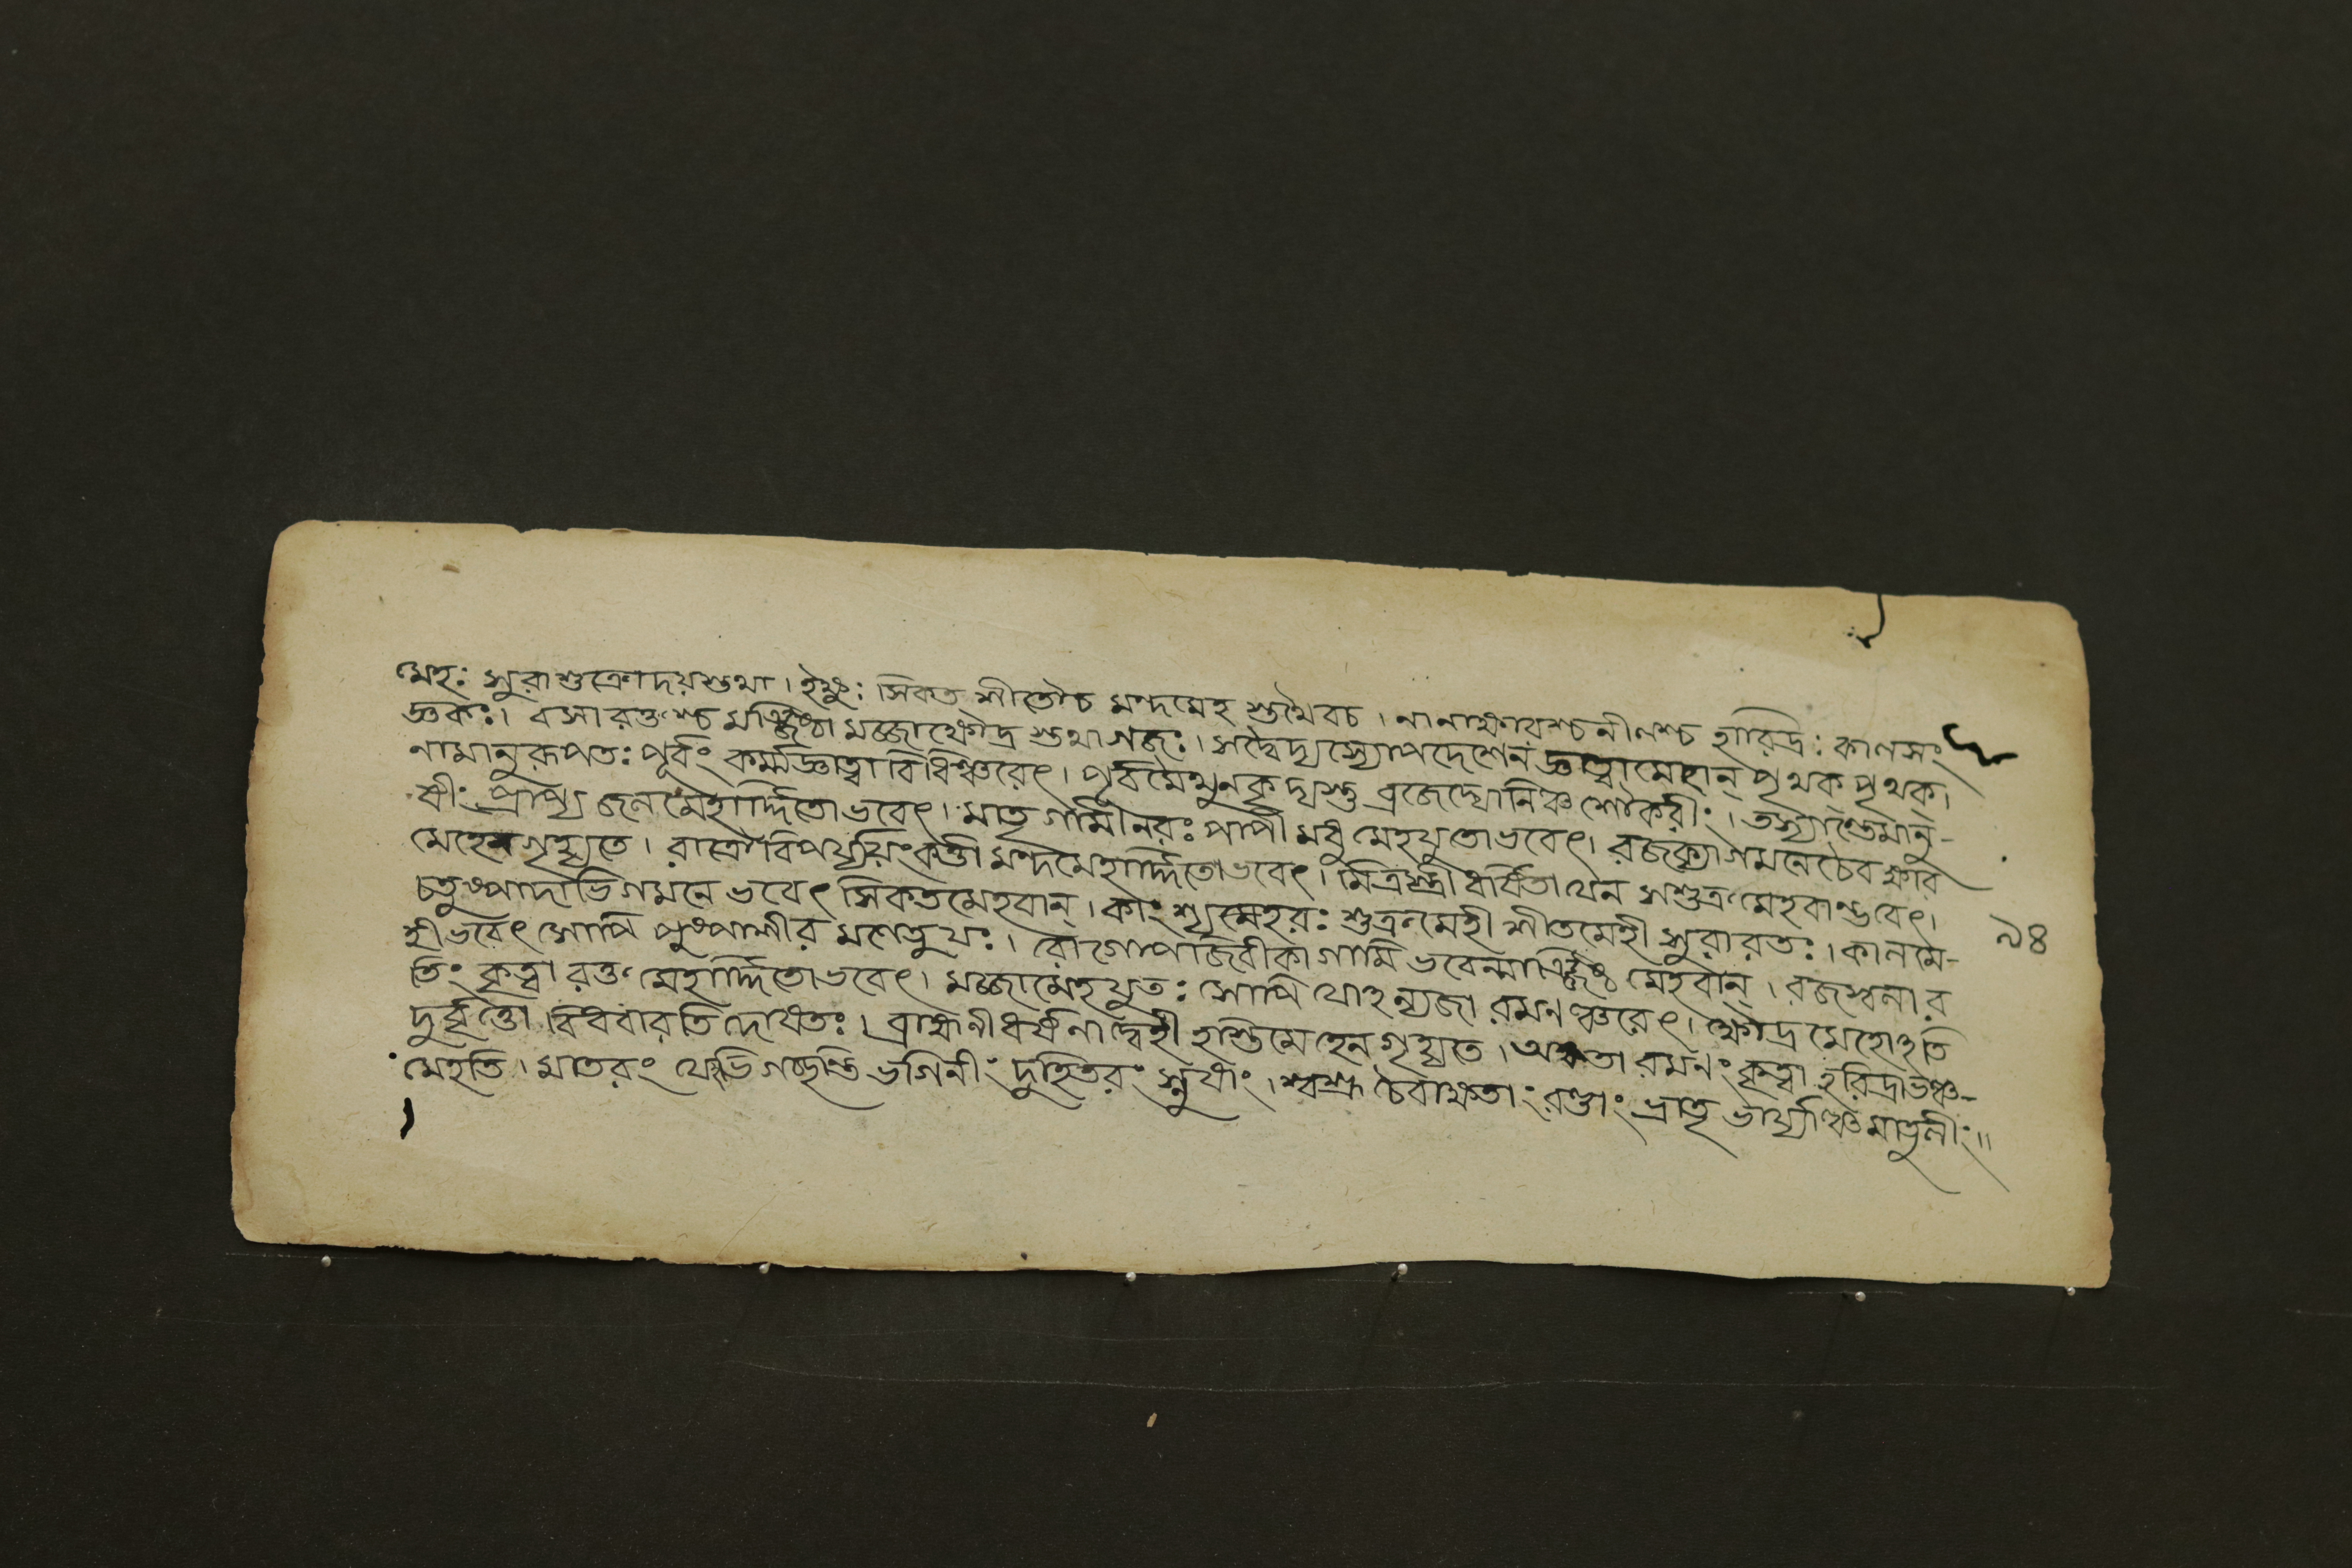 মেহঃ সুরাশুক্রোদয়স্তথা । ইক্ষুঃ । সিকত শীতৌচ মন্দমেহ স্তথৈবচ । নানাক্ষারশ্চনীলশ্চ হারিদ্রঃ কালসং
জ্ঞকঃ । বসা রক্তশ্চ মঞ্জিষ্ঠা মজ্জাক্ষৌদ্র স্তথাগজঃ । সদ্বৈদ্যস্যোপদেশেন জ্ঞাত্বামেহান্ পৃথক্ পৃথক্ ।
নামানুরূপতঃ পূর্বং কর্ম্মজ্ঞাত্বা বিধিঞ্চরেৎ । পূর্বমৈথুনকৃদ্যস্তু ব্রজেদ্যোনিঞ্চ শৌকরীং । তস্যান্তেমানু-
ষীং প্রাপ্য জনমেহার্দ্দিতোভবেৎ । মাতৃ গামীনরঃ পাপী মধুমেহযুতোভবেৎ । রজক্যাগমনেচৈব ক্ষার
মেহেনগৃহ্যতে । রাত্রৌবিপর্য্যয়ংকর্ত্তা মন্দমেহার্দ্দিতোভবেৎ । মিত্রস্ত্রী ধর্ষিতা যেন সশুক্রমেহবান্ভবেৎ ।
চতুষ্পাদাভিগমনে ভবেৎ সিকতমেহবান্ । কাংশ্যহরঃ শুক্রমেহী শীতমেহী সুরারতঃ । কালমে-
হী ভবেৎ সোপি পুষ্পশীর মণেতুযঃ । রোগোপজিবীকাগামি ভবেন্মাঞ্জিষ্ঠ মেহবান্ । রজস্বলার
তিং কৃত্বা রক্তমেহার্দ্দিতোভবেৎ । মজ্জামেহযুতঃ সোপি যোহন্যজা রমনঞ্চরেৎ । ক্ষৌদ্র মেহোহতি
দুর্বৃত্তো বিধবারতি দোষতঃ । ব্রাহ্মনীধর্ষনাদ্বেহী হস্তিমেহেনগৃহ্যতে । অক্ষতা রমনং কৃত্বা হরিদ্রাভঞ্চ-
মেহতি । মাতরং যোভিগচ্ছন্তি ভগিনীং দুহিতরং স্নুষাং । শ্বশ্রূ চৈবাক্ষতাং রণ্ডাং ভ্রাতৃ ভার্য্যাঞ্চমাতুলীং ॥
৯৪